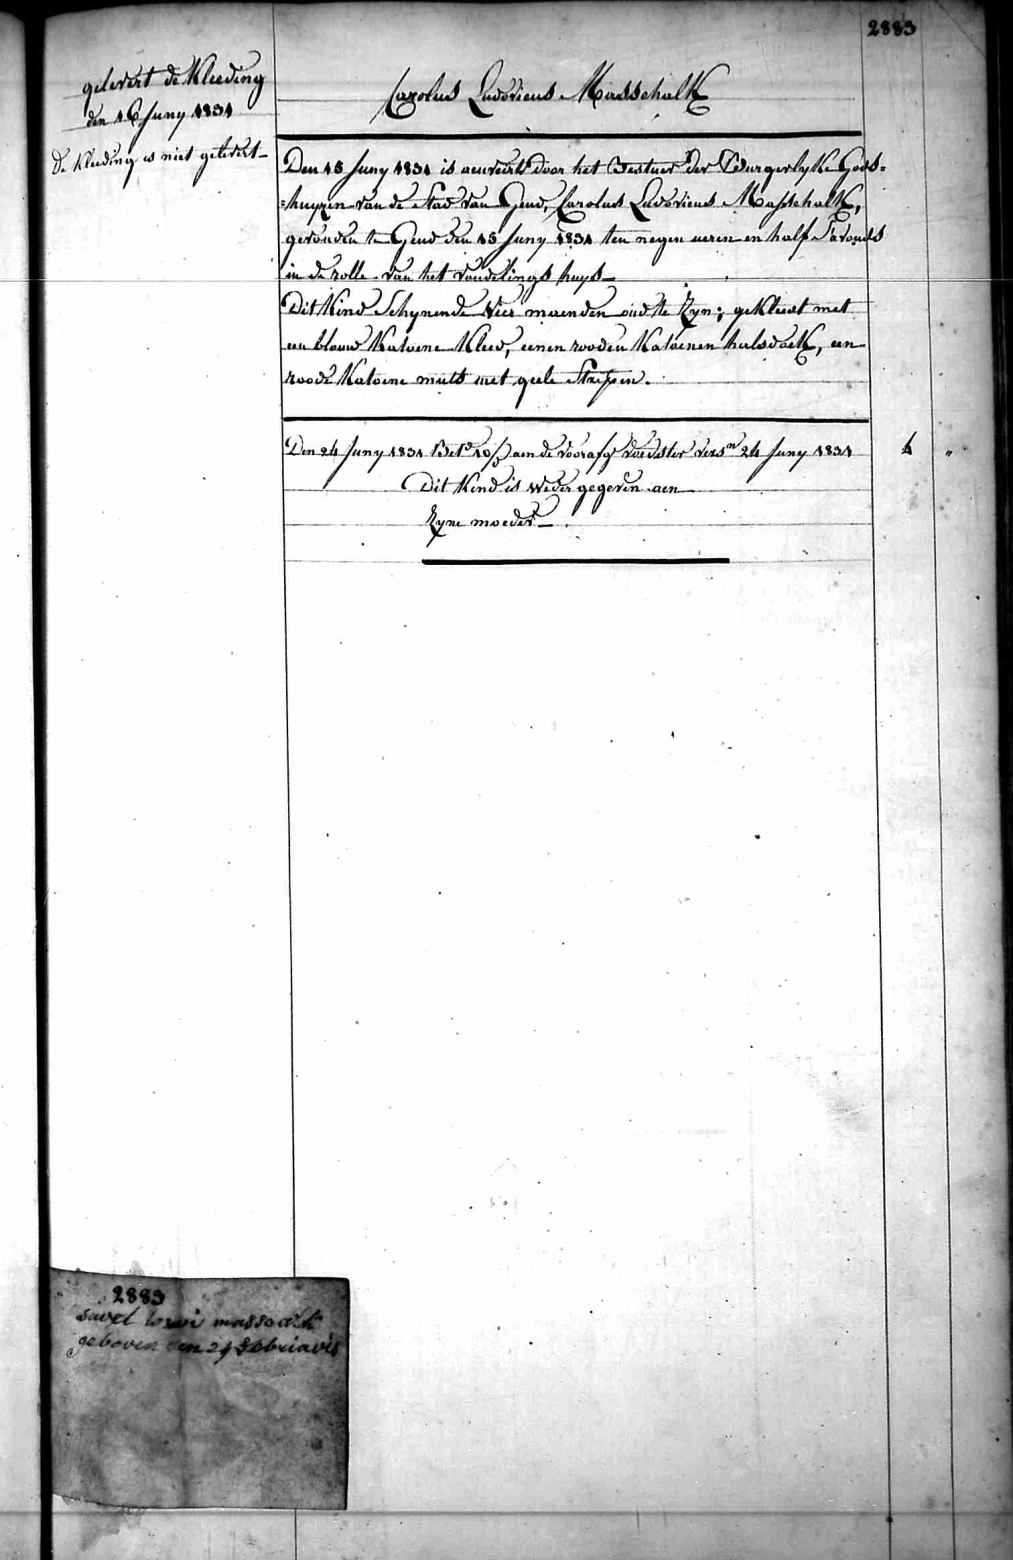 2883
gelevert de Kleeding
den 16 Juny 1831
De Kleeding is niet gelevert
Carolus Ludovicus Masschalk
Den 15 Juny 1831 is aenveirt door het Bestuer der Burgerlyke Gods=
=huyzen van de Stad van Gend, Carolus Ludovicus Masschalk,
gevonden te Gend den 15 Juny 1831 ten negen ueren en half S'avonds
in de rolle van het vondelings huys
Dit Kind Schynende vier maenden oud te Zyn; gekleed met
een blauw Katoene Kleed, eenen rooden Katoenen halsdoek, een
roode Katoene muts met geele Strepen.
Den 24 Juny 1831 Bet.d aen de voorafg voedster 24 Juny 1831
4 "
Dit Kind is weder gegeven aen
Zyne moeder
2883
geboren den 29 Febriavis